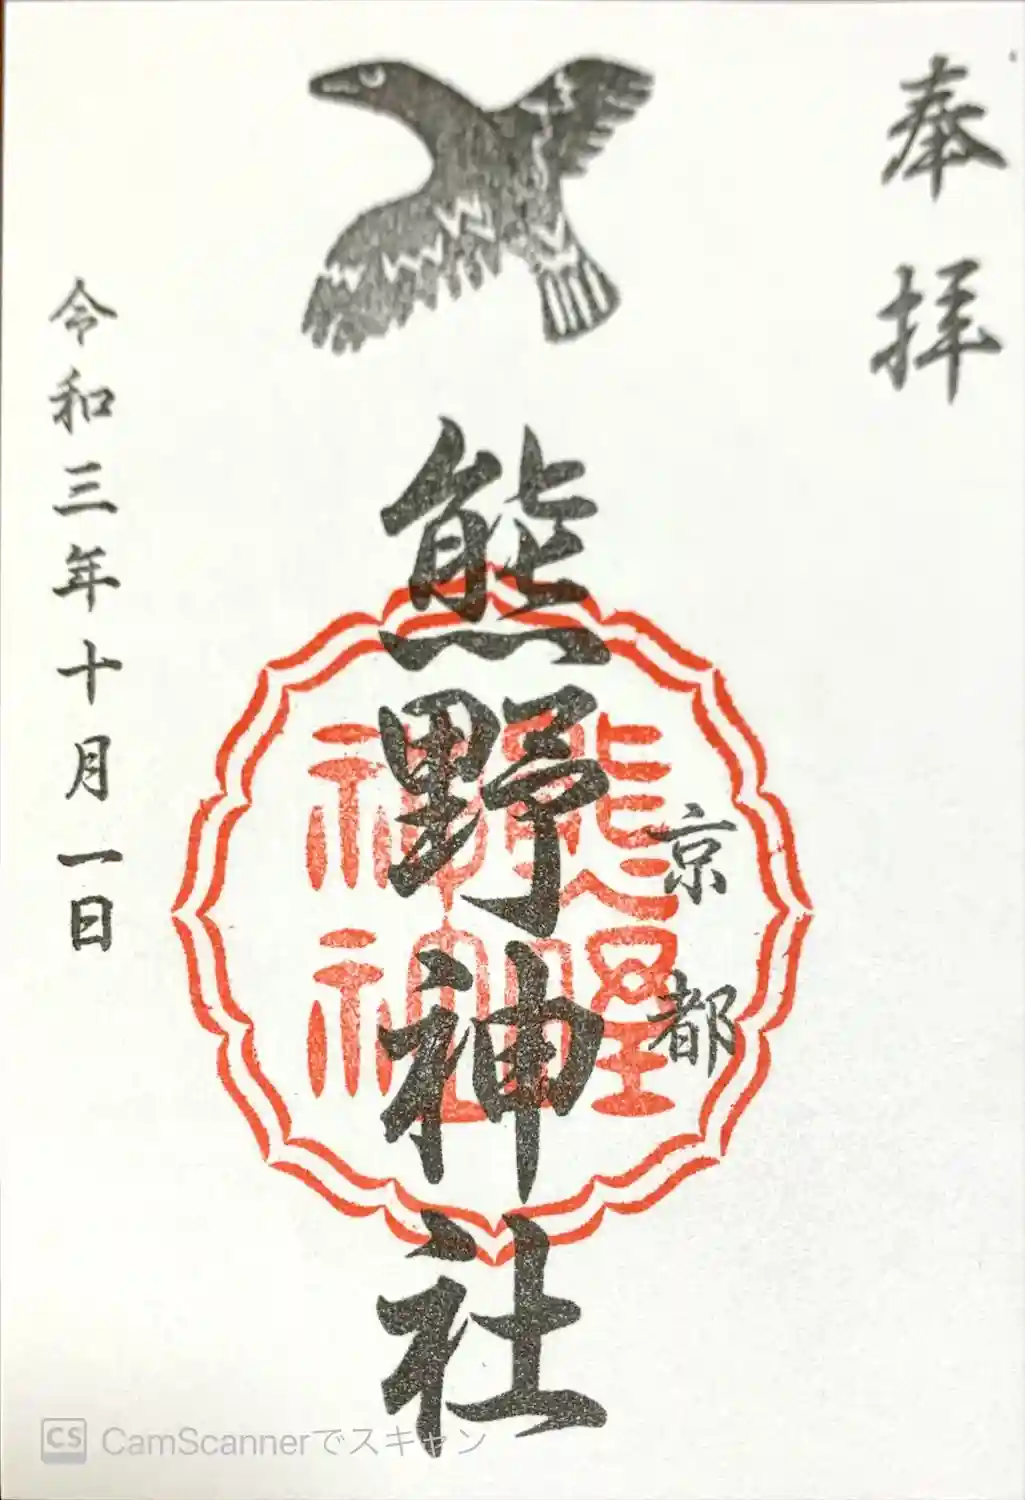 奉拝
京都
熊野神社
熊野
神社
令和三年十月一日
CS CamScannerでスキャン